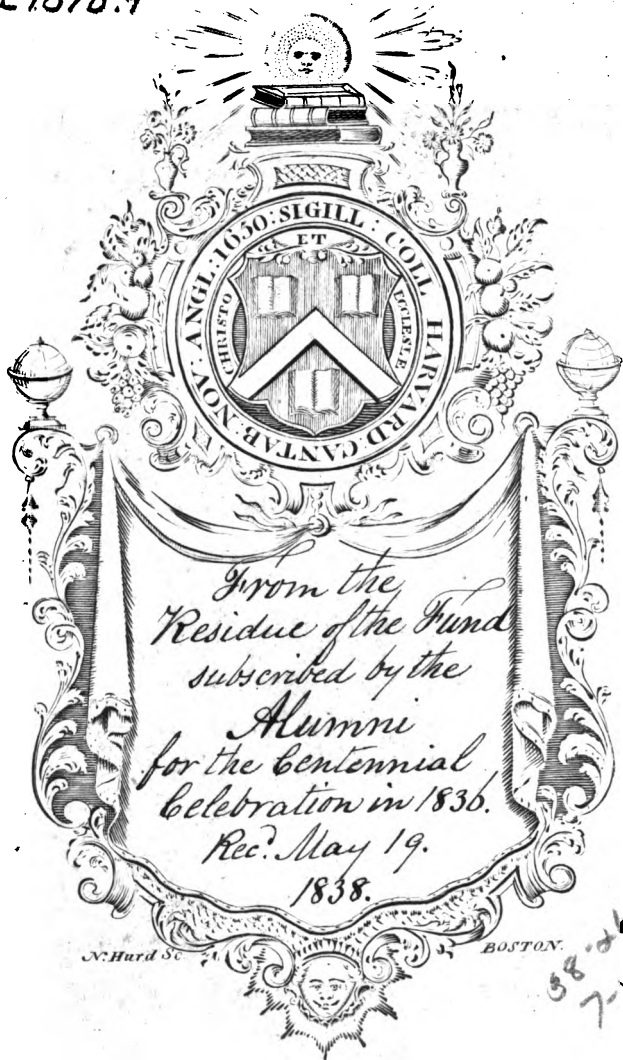 SIGILL: COLL HARVARD: CANTAB: NOV: ANGL: 1650:
CHRISTO
ET
ECCLESIÆ
From the
Residue of the Fund
subscribed by the
Alumni
for the Centennial
Celebration in 1836.
Rec.d May 19.
1838.
N. Hurd Sc.
BOSTON.